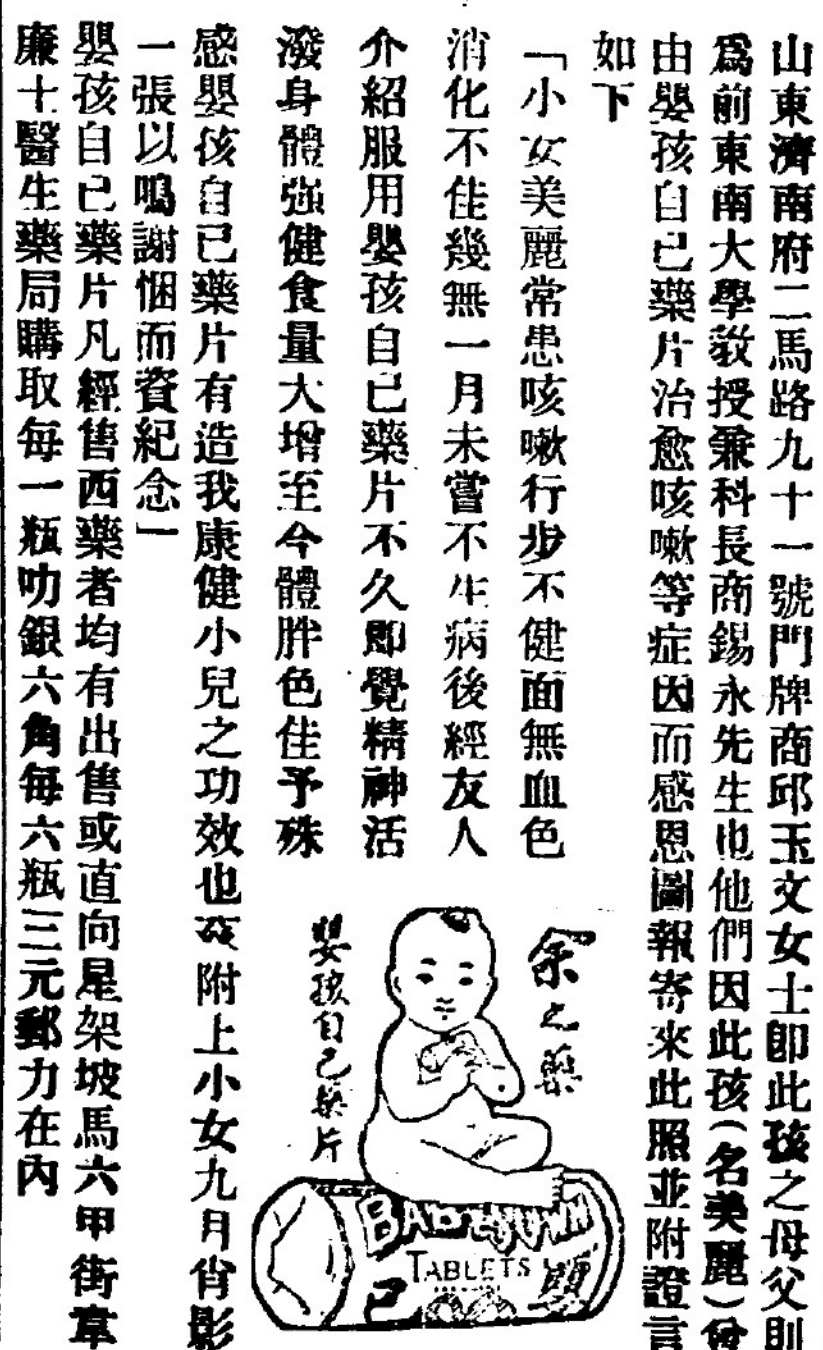 山東濟南府二馬路九十一號門牌商邱玉文女士卽此孩之母父則
爲前東南大學敎授兼科長商錫永先生也他們因此孩(名美麗)曾
由嬰孩自己藥片治愈咳嗽等症因而感恩圖報寄來此照並附證言
如下
「小女美麗常患咳嗽行步不健面無血色
消化不佳幾無一月未嘗不生病後經友人
介紹服用嬰孩自己藥片不久即覺精神活
潑身體强健食量大增至今體胖色佳予殊
感嬰孩自己藥片有造我康健小兒之功效也茲附上小女九月肖影
一張以鳴謝悃而資紀念」
嬰孩自己藥片凡經售西藥者均有出售或直向星架坡馬六甲街韋
廉士醫生藥局購取每一瓶叻銀六角每六瓶三元郵力在內
余之藥
嬰孩自己藥片
BABY'S OWN
TABLETS
嬰
己